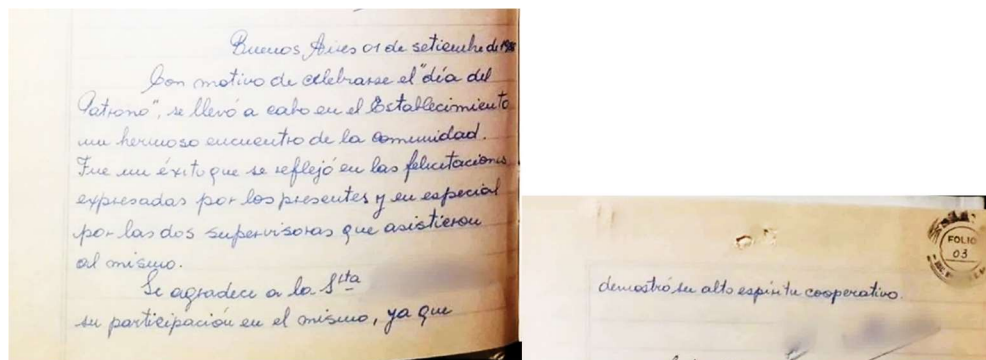 Buenos Aires 01 de setiembre de
Con motivo de celebrarse el "día del
Patrono", se llevó a cabo en el Establecimiento
un hermoso encuentro de la comunidad.
Fue un éxito que se reflejó en las felicitaciones
expresadas por los presentes y en especial
por las dos supervisoras que asistieron
al mismo.
Se agradece a la Srta
su participación en el mismo, ya que
demostró su alto espíritu cooperativo.
FOLIO
03